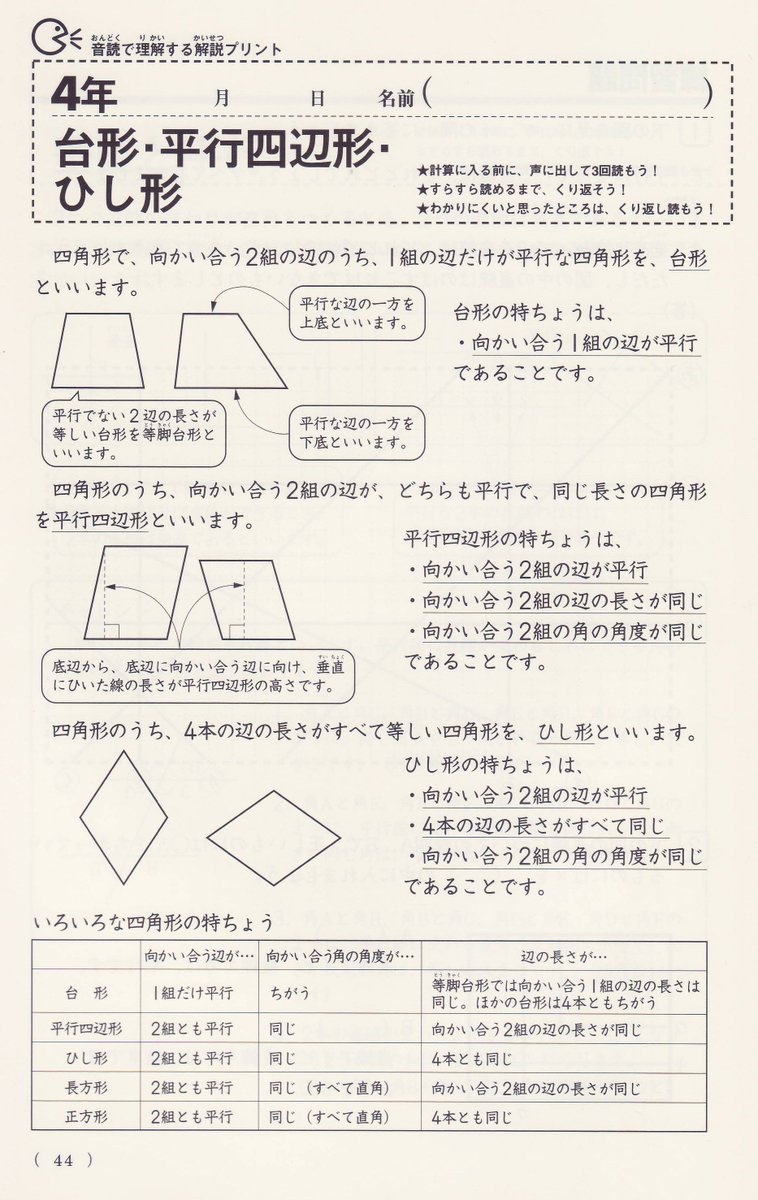 音読で理解する解説プリント
4年 月 日 名前( )
台形・平行四辺形・
ひし形
★計算に入る前に、声に出して3回読もう!
★すらすら読めるまで、くり返そう!
★わかりにくいと思ったところは、くり返し読もう!
四角形で、向かい合う2組の辺のうち、1組の辺だけが平行な四角形を、台形
といいます。
平行な辺の一方を
上底といいます。
台形の特ちょうは、
・向かい合う1組の辺が平行
であることです。
平行でない2辺の長さが
等しい台形を等脚台形と
いいます。
平行な辺の一方を
下底といいます。
四角形のうち、向かい合う2組の辺が、どちらも平行で、同じ長さの四角形
を平行四辺形といいます。
平行四辺形の特ちょうは、
・向かい合う2組の辺が平行
・向かい合う2組の辺の長さが同じ
・向かい合う2組の角の角度が同じ
であることです。
底辺から、底辺に向かい合う辺に向け、垂直
にひいた線の長さが平行四辺形の高さです。
四角形のうち、4本の辺の長さがすべて等しい四角形を、ひし形といいます。
ひし形の特ちょうは、
・向かい合う2組の辺が平行
・4本の辺の長さがすべて同じ
・向かい合う2組の角の角度が同じ
であることです。
いろいろな四角形の特ちょう
向かい合う辺が… 向かい合う角の角度が… 辺の長さが…
台形 1組だけ平行 ちがう 等脚台形では向かい合う1組の辺の長さは
同じ。ほかの台形は4本ともちがう
平行四辺形 2組とも平行 同じ 向かい合う2組の辺の長さが同じ
ひし形 2組とも平行 同じ 4本とも同じ
長方形 2組とも平行 同じ(すべて直角) 向かい合う2組の辺の長さが同じ
正方形 2組とも平行 同じ(すべて直角) 4本とも同じ
( 44 )